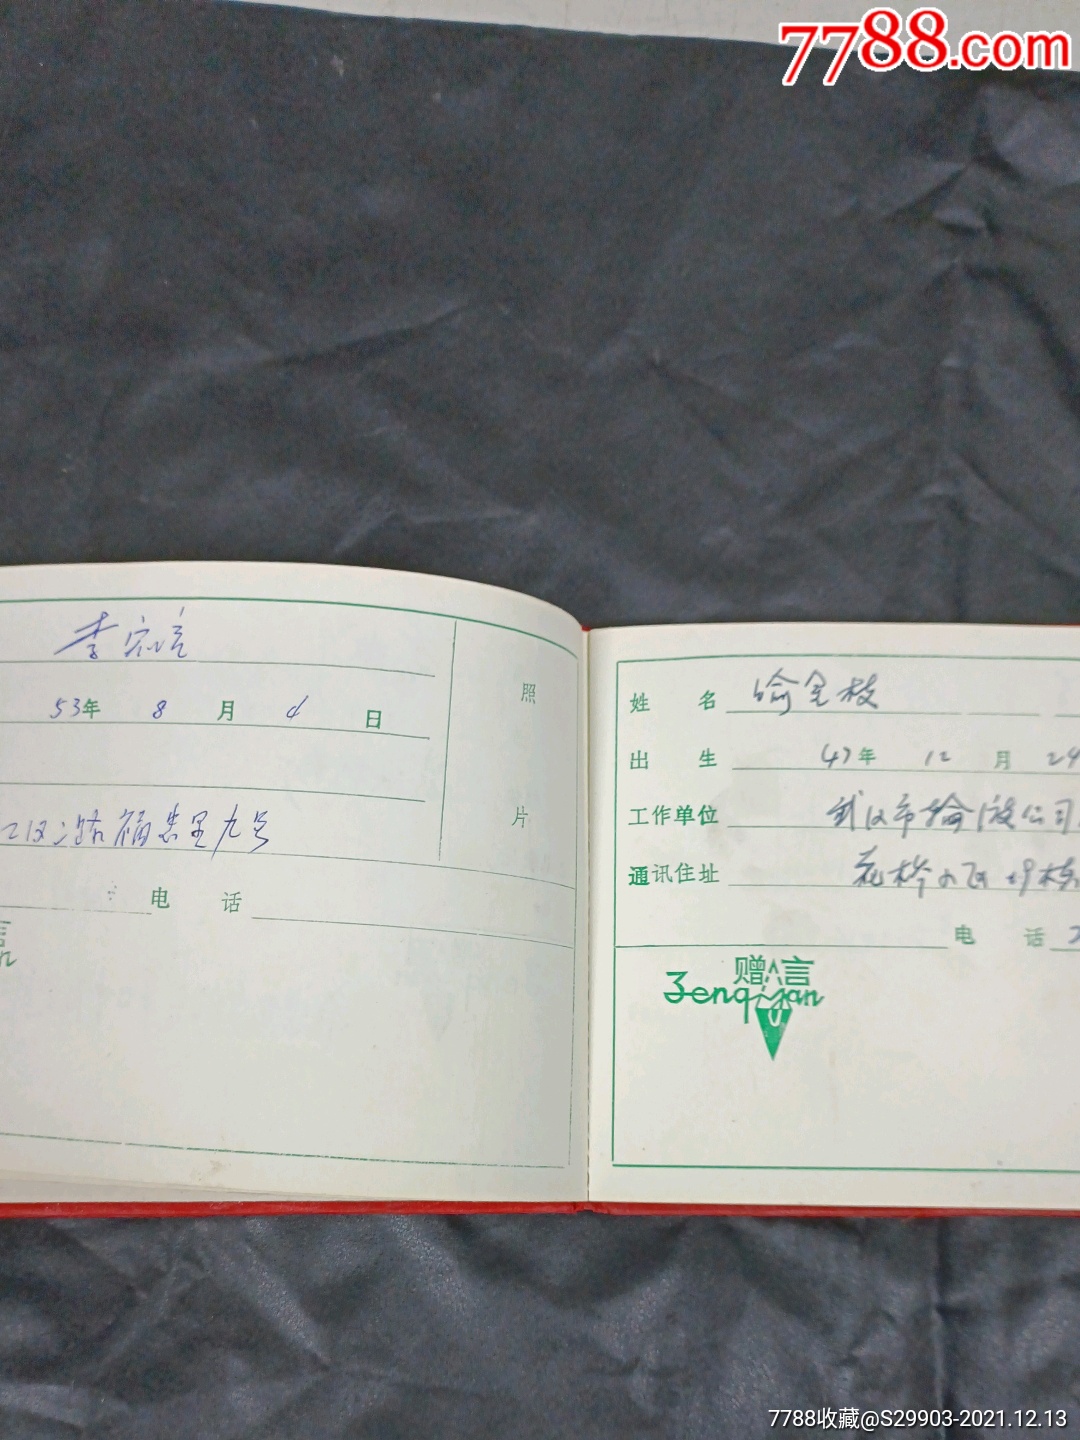 7788.com
李
53年 8 月 4 日
照
片
汉二路福忠里九号
电 话
姓 名 喻金枝
出 生 47年 12 月 24
工作单位 武汉市轮渡公司
通讯住址 花桥小区
电 话
赠言
Zengyan
7788收藏@S29903-2021.12.13